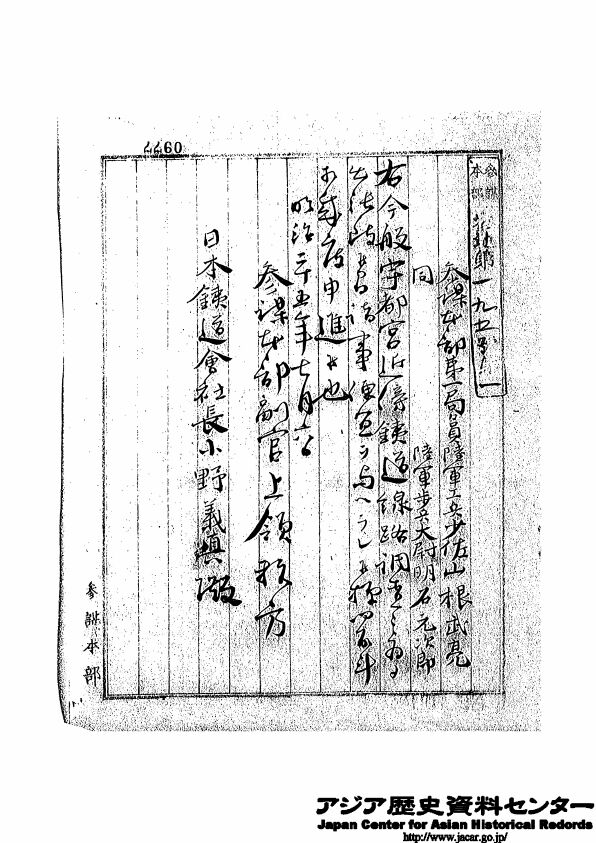 0977
参謀本部
第一九五号ノ一
参謀本部第一局員陸軍工兵少佐山根武亮
同 陸軍歩兵大尉明石元次郎
右今般宇都宮近傍鉄道線路調査之為
出張 候 事 便宜ヲ与ヘラレ度
此段申進候也
明治二十五年七月六日
参謀本部副官上領頼方
日本鉄道會社長小野義真殿
参謀本部
アジア歴史資料センター
Japan Center for Asian Historical Redords
http://www.jacar.go.jp/